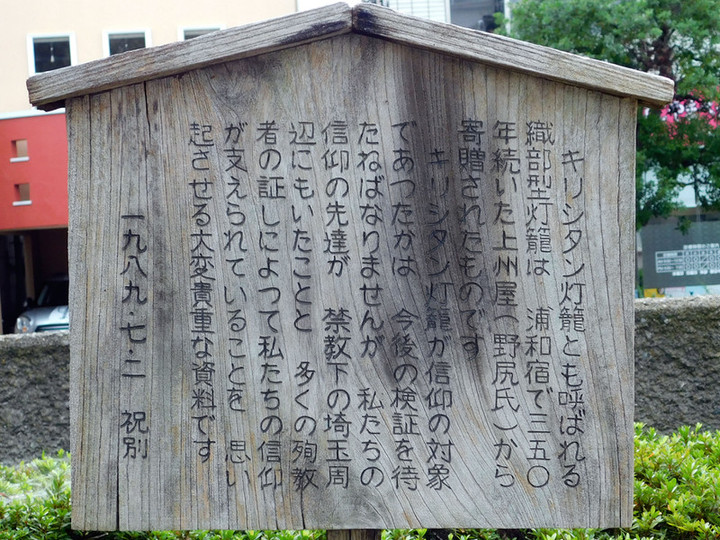 キリシタン灯籠とも呼ばれる
織部型灯籠は　浦和宿で三五〇
年続いた上州屋（野尻氏）から
寄贈されたものです
キリシタン灯籠が信仰の対象
であつたかは　今後の検証を待
たねばなりませんが　私たちの
信仰の先達が　禁教下の埼玉周
辺にもいたことと　多くの殉教
者の証しによつて私たちの信仰
が支えられていることを　思い
起させる大変貴重な資料です
一九八九・七・二　祝別